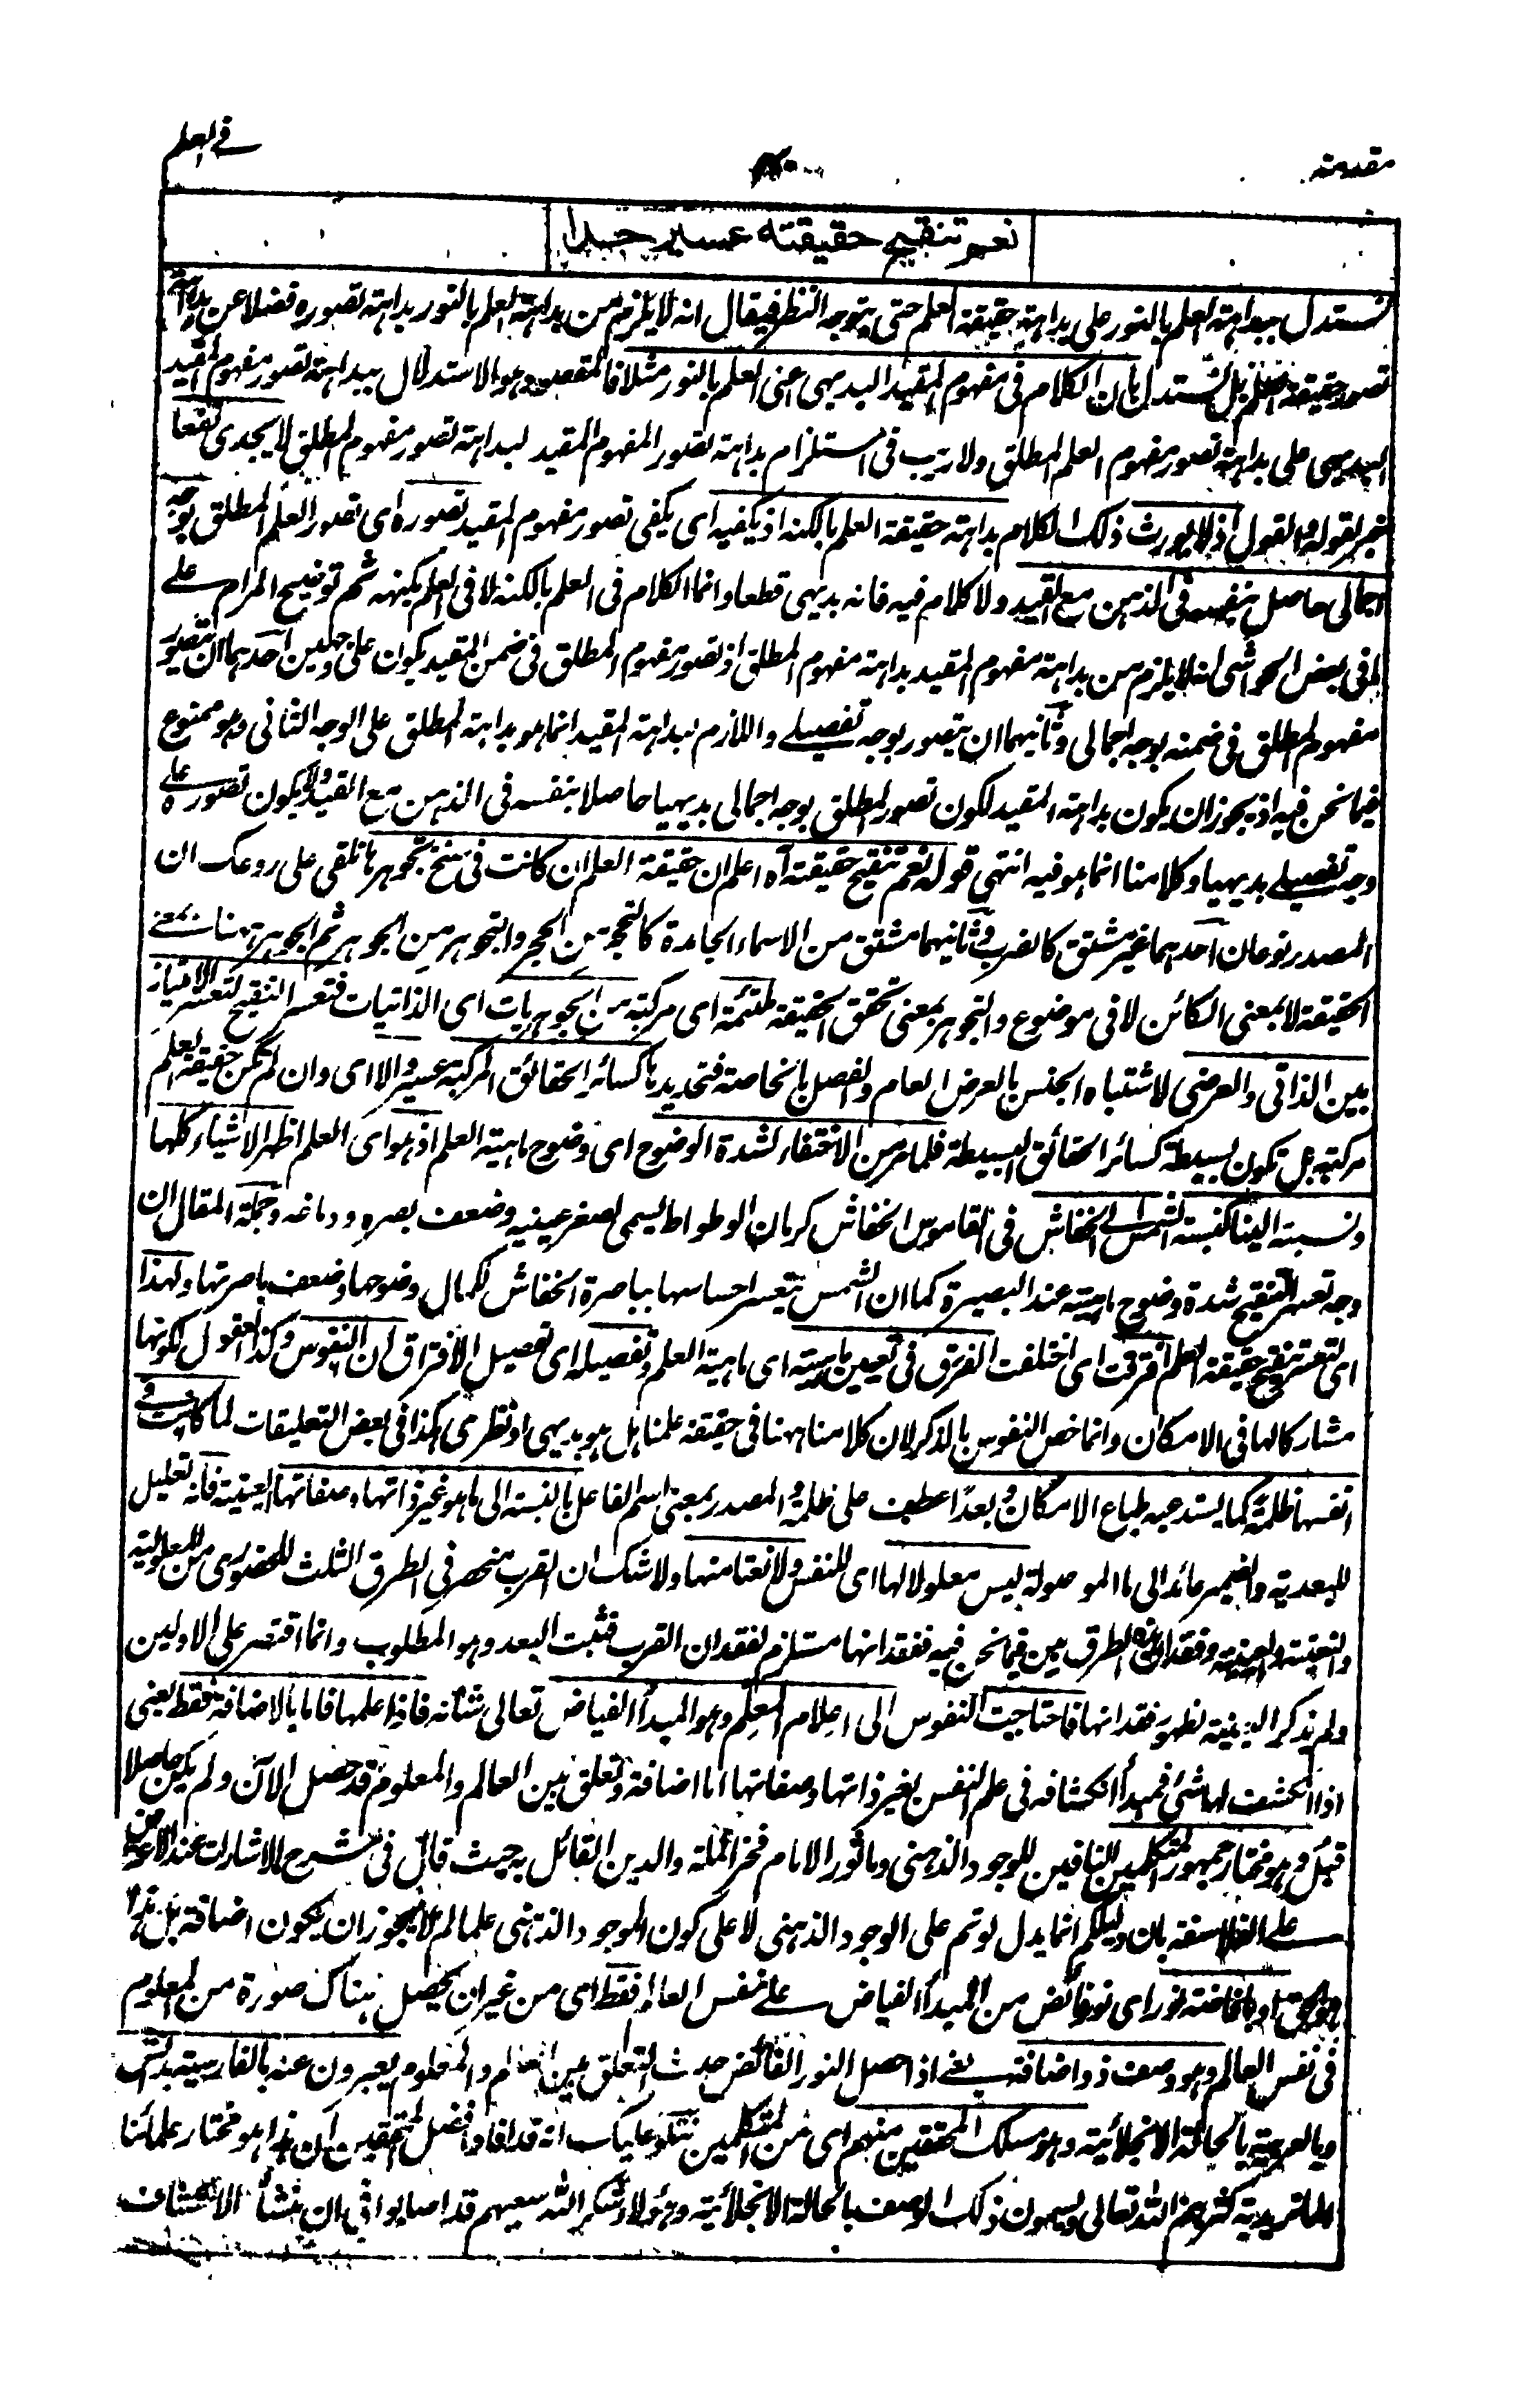 مقدمة
في العلم
نعم تنقيح حقيقته عسير جدا
نستدل ببداهة العلم بالنور على بداهة حقيقة العلم حتى يتوجه النظر فيقال انه لا يلزم من بداهة العلم بالنور بداهة تصوره فضلا عن بداهة
تصور حقيقة العلم بل نستدل بان الكلام في مفهوم المقيد البديهي اعنى العلم بالنور مثلا فالمقصود هو الاستدلال ببداهة تصور مفهوم المقيد
البديهي على بداهة تصور مفهوم العلم المطلق ولا ريب في استلزام بداهة تصور المفهوم المقيد لبداهة تصور مفهوم المطلق لا يجدى نفعا
خبر لقوله والقول اذ لا يورث ذلك الكلام بداهة حقيقة العلم بالكنه اذ يكفيه اى يكفى تصور مفهوم المقيد تصوره اى تصور العلم المطلق بوجه
اجمالى حاصل بنفسه في الذهن مع المقيد ولا كلام فيه فانه بديهي قطعا وانما الكلام في العلم بالكنه لا في العلم بكنهه ثم توضيح المرام على
ما في بعض الحواشى انه لا يلزم من بداهة مفهوم المقيد بداهة مفهوم المطلق اذ تصور مفهوم المطلق في ضمن المقيد يكون على وجهين احدهما ان يتصور
مفهوم المطلق في ضمنه بوجه اجمالى وثانيهما ان يتصور بوجه تفصيلے واللازم لبداهة المقيد انما هو بداهة المطلق على الوجه الثانى وهو ممنوع
فيما نحن فيه اذ يجوز ان يكون بداهة المقيد لكون تصور المطلق بوجه اجمالى بديهيا حاصلا بنفسه في الذهن مع القيد ولا يكون تصوره على
وجه تفصيلے بديهيا وكلامنا انما هو فيه انتهى قوله نعم تنقيح حقيقته آه اعلم ان حقيقة العلم ان كانت في سنخ تجوهرها نلقى على روعك ان
المصدر نوعان احدهما غير مشتق كالضرب وثانيهما مشتق من الاسماء الجامدة كالتحجر من الحجر والتجوهر من الجوهر ثم الجوهر ههنا بمعنے
الحقيقة لا بمعنى الكائن لا في موضوع والتجوهر بمعنى تحقق الحقيقة ملتئمة اى مركبة من الجوهريات اى الذاتيات فتعسر التنقيح لتعسر الامتياز
بين الذاتى والعرضى لاشتباه الجنس بالعرض العام والفصل بالخاصة فتحديدها كسائر الحقائق المركبة عسير والا اى وان لم تكن حقيقة العلم
مركبة بل تكون بسيطة كسائر الحقائق البسيطة فلما عرض الاختفاء لشدة الوضوح اى وضوح ماهية العلم اذ هو اى العلم اظهر الاشياء كلها
ونسبته الينا كنسبة الشمس الى الخفاش في القاموس الخفاش كرمان الوطواط يسمى لصغر عينيه وضعف بصره ودماغه وجملة المقال ان
وجه تعسر التنقيح شدة وضوح ماهيته عند البصيرة كما ان الشمس تتعسر احساسها بباصرة الخفاش لكمال وضوحها وضعف باصرتها ولهذا
اى لتعسر تنقيح حقيقة العلم افترقت اى اختلفت الفرق في تعيين ماهيته اى ماهية العلم وتفصيله اى تفصيل الافتراق ان النفوس وكذا العقول لكونها
مشاركا لها في الامكان وانما خص النفوس بالذكر لان كلامنا ههنا في حقيقة علمنا بل هو بديهي او نظرى هكذا في بعض التعليقات لما كانت في
انفسها ظلمة كما يستدعيه طباع الامكان وبعدا عطف على ظلمة والمصدر بمعنى اسم الفاعل بالنسبة الى ما هو غير ذاتها وصفاتها العينية فانه تعليل
للبعدية والضمير عائد الى ما الموصولة ليس معلولا لها اى للنفس ولا نعتا منها ولا شك ان القرب منحصر في الطرق الثلث للحضورى من المعلولية
والنعتية والعينية وفقدان هذه الطرق بين فيما نحن فيه ففقدانها مستلزم لفقدان القرب فثبت البعد وهو المطلوب وانما اقتصر على الاولين
ولم يذكر العينية لظهور فقدانها فاحتاجت النفوس الى اعلام المعلم وهو المبدأ الفياض تعالى شانه فاذا علمها فاما بالاضافة فقط يعنى
اذا انكشفت لها شئ فمبدأ انكشافه في علم النفس بغير ذاتها وصفاتها اما اضافة وتعلق بين العالم والمعلوم قد حصل الآن ولم يكن حاصلا
قبل وهو مختار جمهور المتكلمين النافين للوجود الذهنى وماثور الامام فخر الملة والدين القائل به حيث قال في شرح الاشارات عند الاعتراض
على الفلاسفة بان دليلكم انما يدل لو تم على الوجود الذهنى لا على كون الموجود الذهنى علما لم لا يجوز ان يكون اضافة بل هذا
هو الحق او بافاضة نور اى نور فائض من المبدأ الفياض على نفس العالم فقط اى من غير ان يحصل هناك صورة من المعلوم
في نفس العالم وهو وصف ذو اضافة يعنے اذا حصل النور الفائض حدث التعلق بين العالم والمعلوم يعبرون عنه بالفارسية بدانش
وبالعربية بالحالة الانجلائية وهو مسلك المحققين منهم اى من المتكلمين نتلو عليك انه قد افاد افضل المحققين ان هذا هو مختار علمائنا
الماتريدية كثرهم الله تعالى ويسمون ذلك الوصف بالحالة الانجلائية وهؤلاء شكر الله سعيهم قد اصابوا في ان منشأ الانكشاف